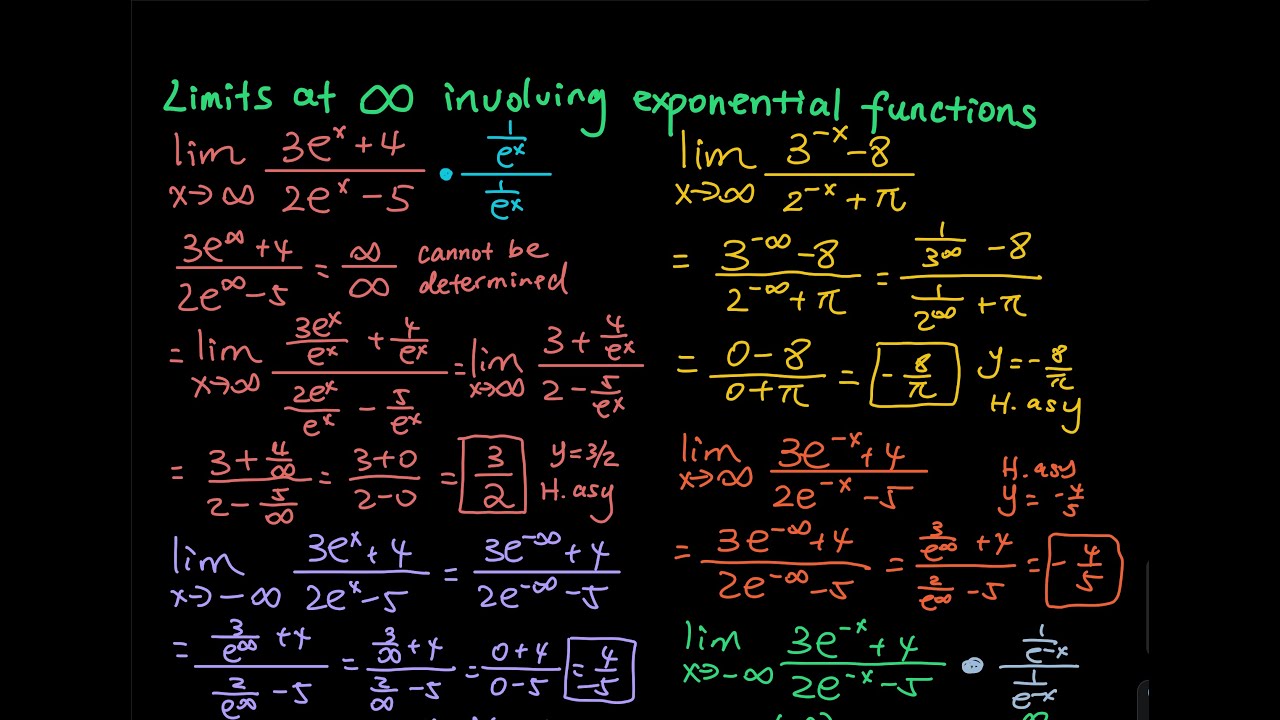 Limits at ∞ involving exponential functions
lim x→∞ (3e^x + 4)/(2e^x - 5) • (1/e^x)/(1/e^x)
(3e^∞ + 4)/(2e^∞ - 5) = ∞/∞ cannot be determined
= lim x→∞ (3e^x/e^x + 4/e^x)/(2e^x/e^x - 5/e^x) = lim x→∞ (3 + 4/e^x)/(2 - 5/e^x)
= (3 + 4/∞)/(2 - 5/∞) = (3+0)/(2-0) = 3/2 y = 3/2 H. asy
lim x→-∞ (3e^x + 4)/(2e^x - 5) = (3e^-∞ + 4)/(2e^-∞ - 5)
= (3/e^∞ + 4)/(2/e^∞ - 5) = (3/∞ + 4)/(2/∞ - 5) = (0+4)/(0-5) = 4/-5
lim x→∞ (3^-x - 8)/(2^-x + π)
= (3^-∞ - 8)/(2^-∞ + π) = (1/3^∞ - 8)/(1/2^∞ + π)
= (0 - 8)/(0 + π) = -8/π y = -8/π H. asy
lim x→∞ (3e^-x + 4)/(2e^-x - 5) H. asy y = -4/5
= (3e^-∞ + 4)/(2e^-∞ - 5) = (3/e^∞ + 4)/(2/e^∞ - 5) = -4/5
lim x→-∞ (3e^-x + 4)/(2e^-x - 5) • (1/e^-x)/(1/e^-x)